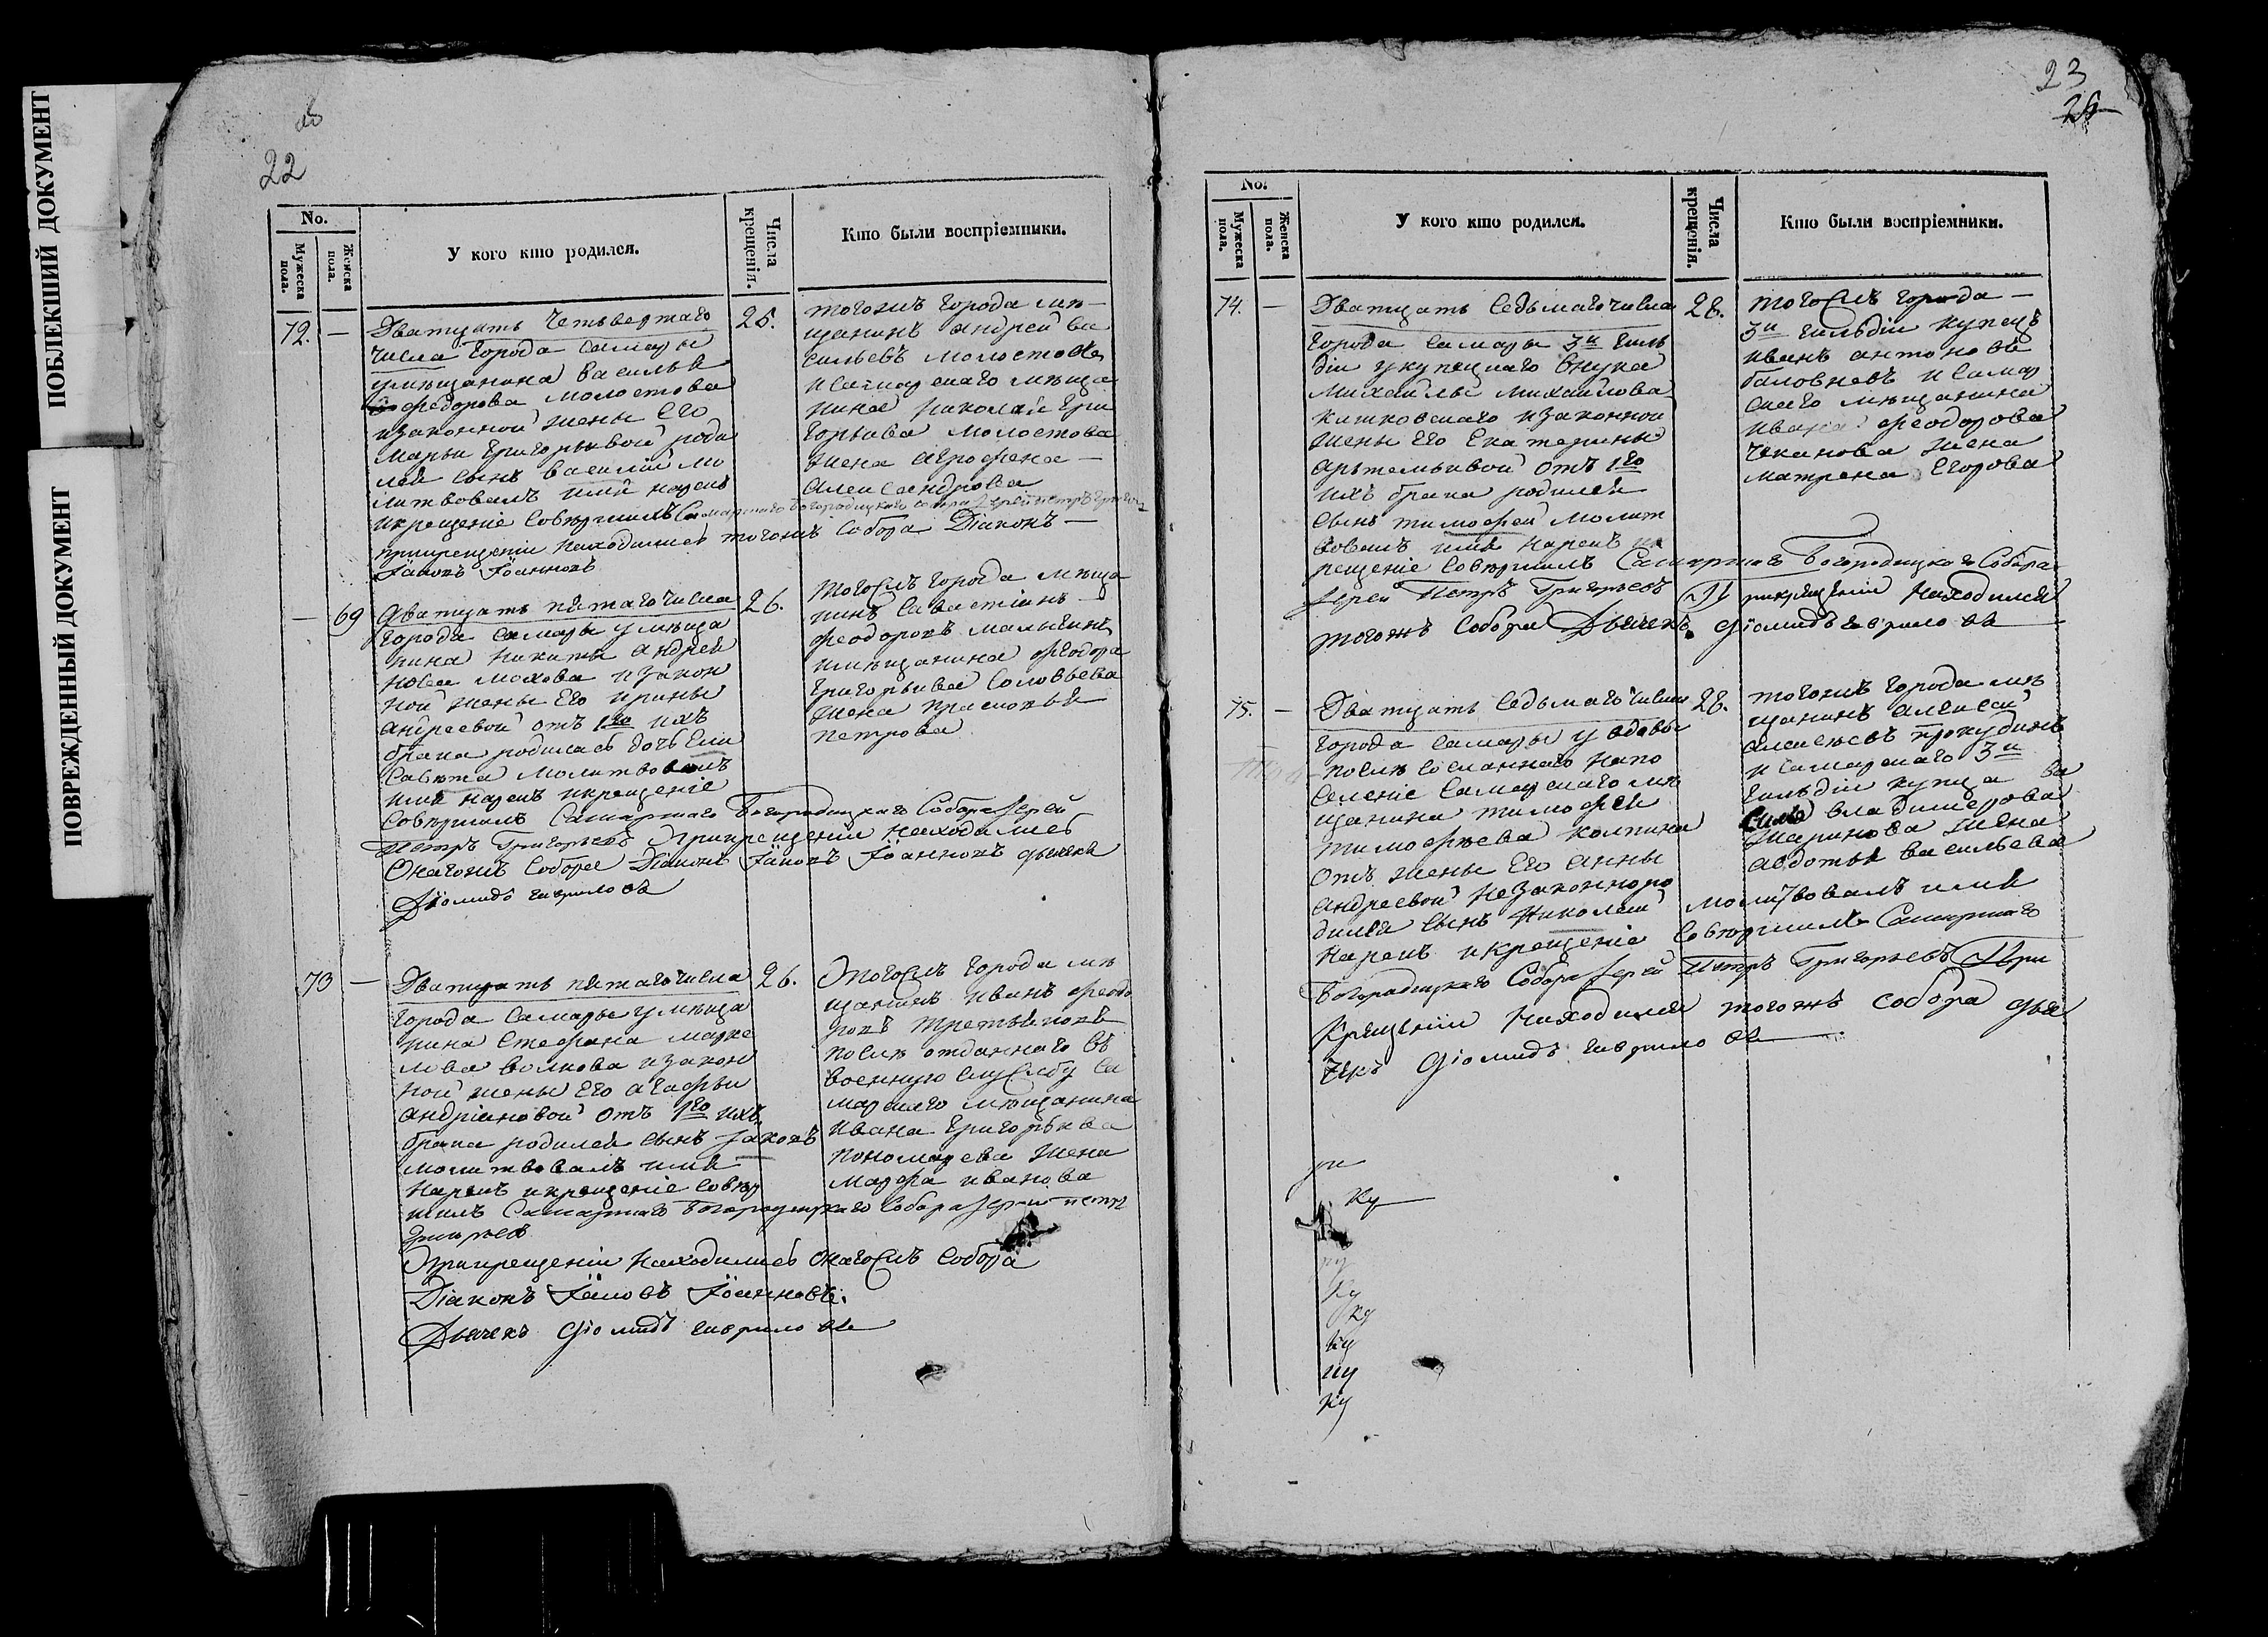 ПОБЛЕКШИЙ ДОКУМЕНТ
ПОВРЕЖДЕННЫЙ ДОКУМЕНТ
22
No.
Мужеска пола.
Женска пола.
У кого кто родился.
Числа крещенія.
Кто были воспріемники.
72. — Дватцать Четьвертаго
числа города Самары
умѣщанина Василья
федорова молостова
изаконной жены Его
марьи григорьевой роди
лся сынъ василій мо
литвовалъ имя нарекъ
икрещеніе совѣршилъ Самарскаго Богородицкаго Собора Іерей петръ Григор
прикрещеніи находились тогожъ Собора Діаконъ —
Іаковъ Іоанновъ
25.
тогожъ города мѣ—
щанинъ андрей ва
сильевъ молостовъ
исамарскаго мѣща
нина николая гри
горьева молостова
жена агрофена —
александрова
— 69 Дватцать пятаго числа
города самары умѣща
нина никиты андрея
нова мохова изакон
ной жены Его ирины
андреевой отъ 1го ихъ
брака родилась дочь Ели
савѣта молитвовалъ
имя нарекъ икрещеніе
совѣршилъ Самарскаго Богородицкаго Собора Іерей
Петръ Григорьевъ Прикрещеніи находились
Онагожъ Собора Діаконъ Іаковъ Іоанновъ дьячекъ
Діомидъ гаврилова
26.
тогожъ города мѣща
нинъ Савастіянъ —
феодоровъ малыгинъ
имѣщанина феодора
григорьева Соловьева
жена прасковья
петрова
73 — Дватцать пятаго числа
города Самары умѣща
нина стефана марке
лова волкова изакон
ной жены Его агафьи
андріановой отъ 1го ихъ
брака родился сынъ Іаковъ
молитвовалъ имя
нарекъ икрещеніе совѣр
шилъ Самарскаго Богородицкаго Собора Іерей петръ
Григорьевъ
Прикрещеніи находились онагожъ собора
Діаконъ Іаковъ Іоанновъ.
Дьячекъ Діомидъ гаврилова
26.
тогожъ города мѣ
щанинъ иванъ феодо
ровъ третьяковъ
послѣ отданнаго въ
военную службу са
марскаго мѣщанина
ивана григорьева
пономарева жена
марфа иванова
23
No.
Мужеска пола.
Женска пола.
У кого кто родился.
Числа крещенія.
Кто были воспріемники.
74. — Дватцать Седьмаго числа
города самары 3й гиль
діи укупецкаго внука
михайлы михайлова
изаконной
жены Его Екатерины
артемьевой отъ 1го
ихъ брака родился
сынъ тимофей молит
вовалъ имя нарекъ ик
рещеніе совѣршилъ Самарскаго Богородицкаго Собора
Іерей Петръ Григорьевъ Прикрещеніи находился
тогожъ Собора Дьячекъ Діомидъ гаврилова
28.
тогожъ города —
3й гильдіи купецъ
иванъ антоновъ
баловневъ и Самар
скаго мѣщанина
ивана феодорова
чеканова жена
матрена Егорова
75. — Дватцать Седьмаго числа
города самары у вдовы
послѣ сосланнаго напо
селеніе Самарскаго мѣ
щанина тимофея
тимофѣева колпина
отъ жены Его анны
андреевой Незаконноро
дился сынъ николай молитвовалъ имя
нарекъ икрещеніе совѣршилъ Самарскаго
Богородицкаго Собора Іерей Петръ Григорьевъ При
Крещеніи находился тогожъ собора дья
чекъ Діомидъ гаврилова
28.
тогожъ города мѣ
щанинъ алексей
алексѣевъ прокудинъ
и самарскаго 3й
гильдіи купца ва
силья владимерова
жена
авдотья васильева
ри
ку
ку
ку
ку
ку
ку